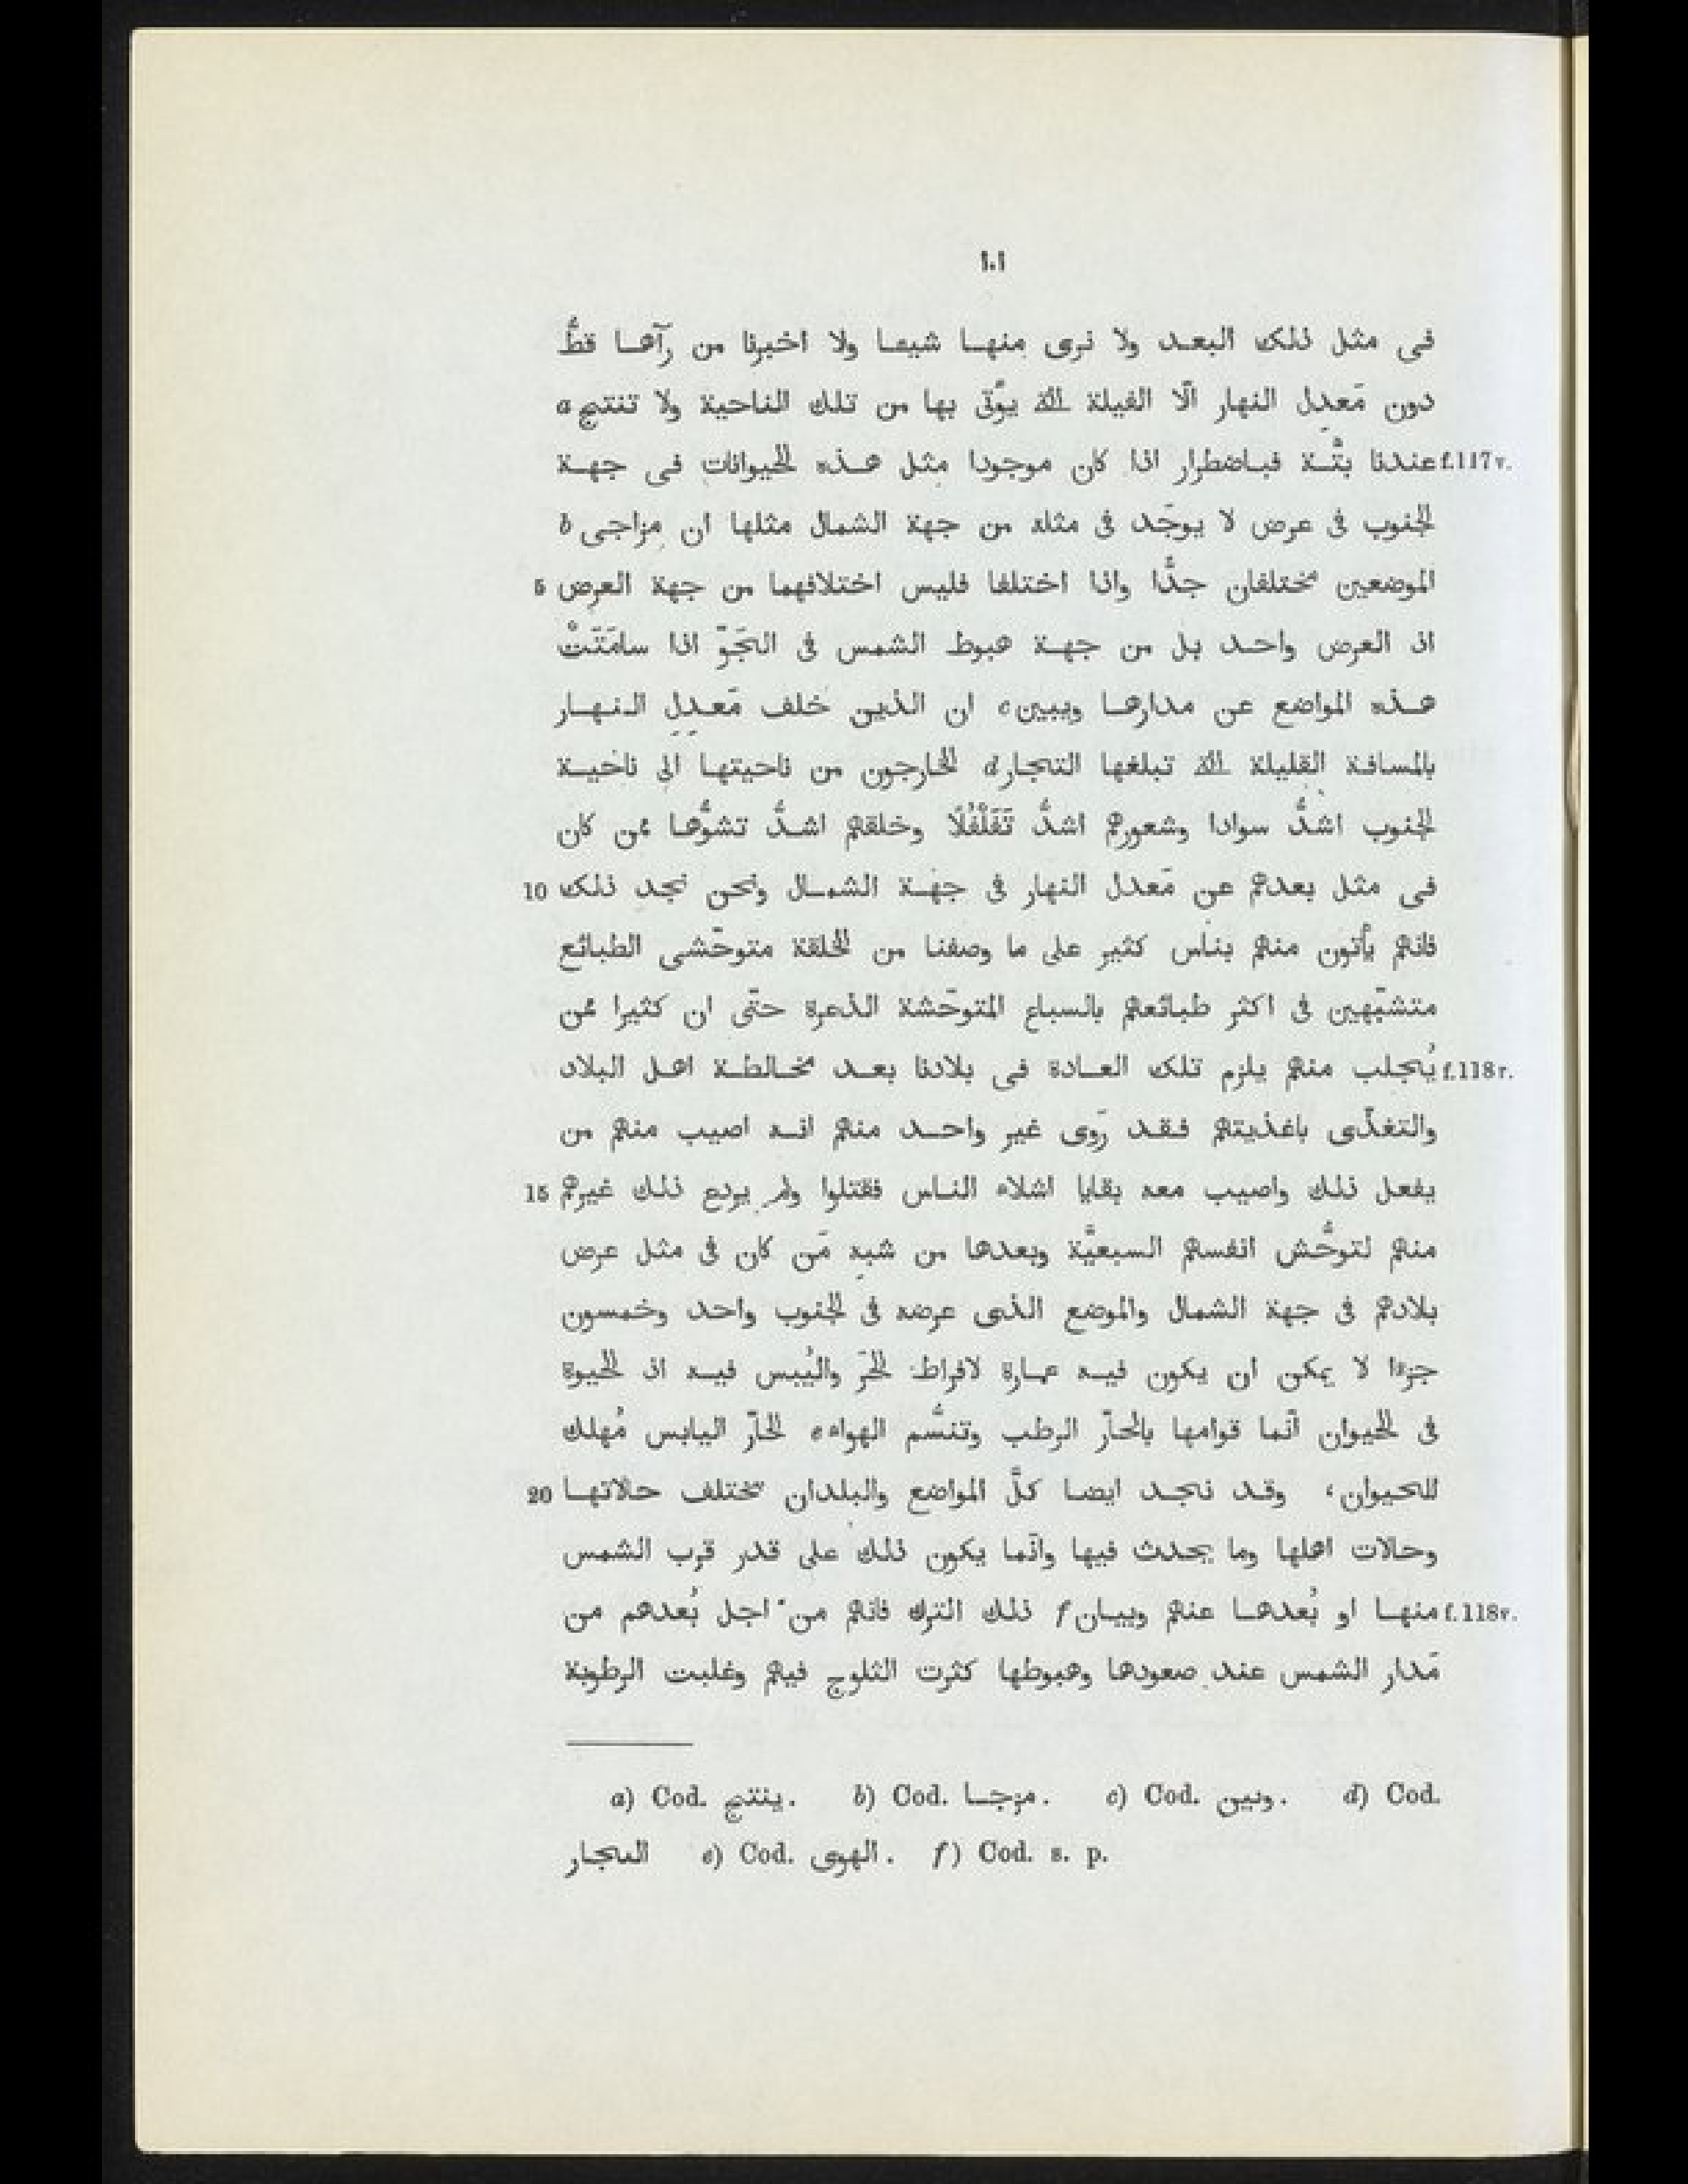 ١٠١
فى مثل ذلك البعد ولا نرى منها شيعا ولا اخبرنا من رآها قطُّ
دون مَعدِل النهار الّا الفيلة الّتى يوّتى بها من تلك الناحية ولا تنتج a
f.117v. عندنا بتّة فباضطرار اذا كان موجودا مثل هذه الحيوانات فى جهة
الجنوب فى عرض لا يوجَد فى مثله من جهة الشمال مثلها ان مزاجى b
الموضعين مختلفان جدًّا واذا اختلفا فليس اختلافهما من جهة العرض 5
اذ العرض واحد بل من جهة هبوط الشمس فى الجَوّ اذا سامَتَتْ
هذه المواضع عن مدارها ويبين c ان الذين خلف مَعدِل النهار
بالمسافة القليلة الّتى تبلغها التجار d الخارجون من ناحيتها الى ناحية
الجنوب اشدُّ سوادا وشعورهم اشدُّ تَفَلْفُلًا وخلقهم اشدُّ تشوُّها ممن كان
فى مثل بعدهم عن مَعدل النهار فى جهة الشمال ونحن نجد ذلك 10
فانهم يأتون منهم بناس كثير على ما وصفنا من الخلقة متوحّشى الطبائع
متشبّهين فى اكثر طبائعهم بالسباع المتوحّشة الذعرة حتّى ان كثيرا ممن
f.118r. يُجلب منهم يلزم تلك العادة فى بلادنا بعد مخالطة اهل البلاد
والتغذّى باغذيتهم فقد رَوى غير واحد منهم انه اصيب منهم من
يفعل ذلك واصيب معه بقايا اشلاء الناس فقتلوا ولم يردع ذلك غيرهم 15
منهم لتوحُّش انفسهم السبعيَّة وبعدها من شبهِ مَن كان فى مثل عرض
بلادهم فى جهة الشمال والموضع الذى عرضه فى الجنوب واحد وخمسون
جزءا لا يمكن ان يكون فيه عمارة لافراط الحَرّ واليُبس فيه اذ الحيوة
فى الحيوان انّما قوامها بالحارّ الرطب وتنسُّم الهواء e الحارّ اليابس مُهلك
للحيوان، وقد نجد ايضا كلَّ المواضع والبلدان تختلف حالاتها 20
وحالات اهلها وما يحدث فيها وانّما يكون ذلك على قدر قرب الشمس
f.118v. منها او بُعدها عنهم وبيان f ذلك الترك فانهم من اجل بُعدهم من
مَدار الشمس عند صعودها وهبوطها كثرت الثلوج فيهم وغلبت الرطوبة
a) Cod. ينتج. b) Cod. مزجا. c) Cod. ونبين. d) Cod.
النجار e) Cod. الهوى. f) Cod. s. p.